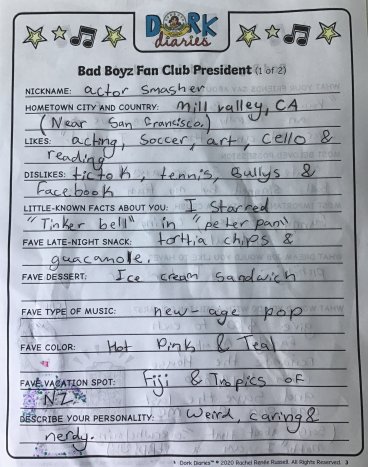 DORK
diaries
Bad Boyz Fan Club President (1 of 2)
NICKNAME: actor Smasher
HOMETOWN CITY AND COUNTRY: Mill valley, CA
(Near San francisco.)
LIKES: acting, Soccer, art, Cello &
reading
DISLIKES: tictok, tennis, Bullys &
facebook
LITTLE-KNOWN FACTS ABOUT YOU: I Starred
"Tinker bell" in "peter pan"
FAVE LATE-NIGHT SNACK: torttia chips &
guacamole.
FAVE DESSERT: Ice cream Sandwich
FAVE TYPE OF MUSIC: new-age pop
FAVE COLOR: Hot Pink & Teal
FAVE VACATION SPOT: Fiji & Tropics of
NZ.
DESCRIBE YOUR PERSONALITY: Weird, caring &
nerdy.
Dork Diaries™ © 2020 Rachel Renée Russell. All Rights Reserved. 3